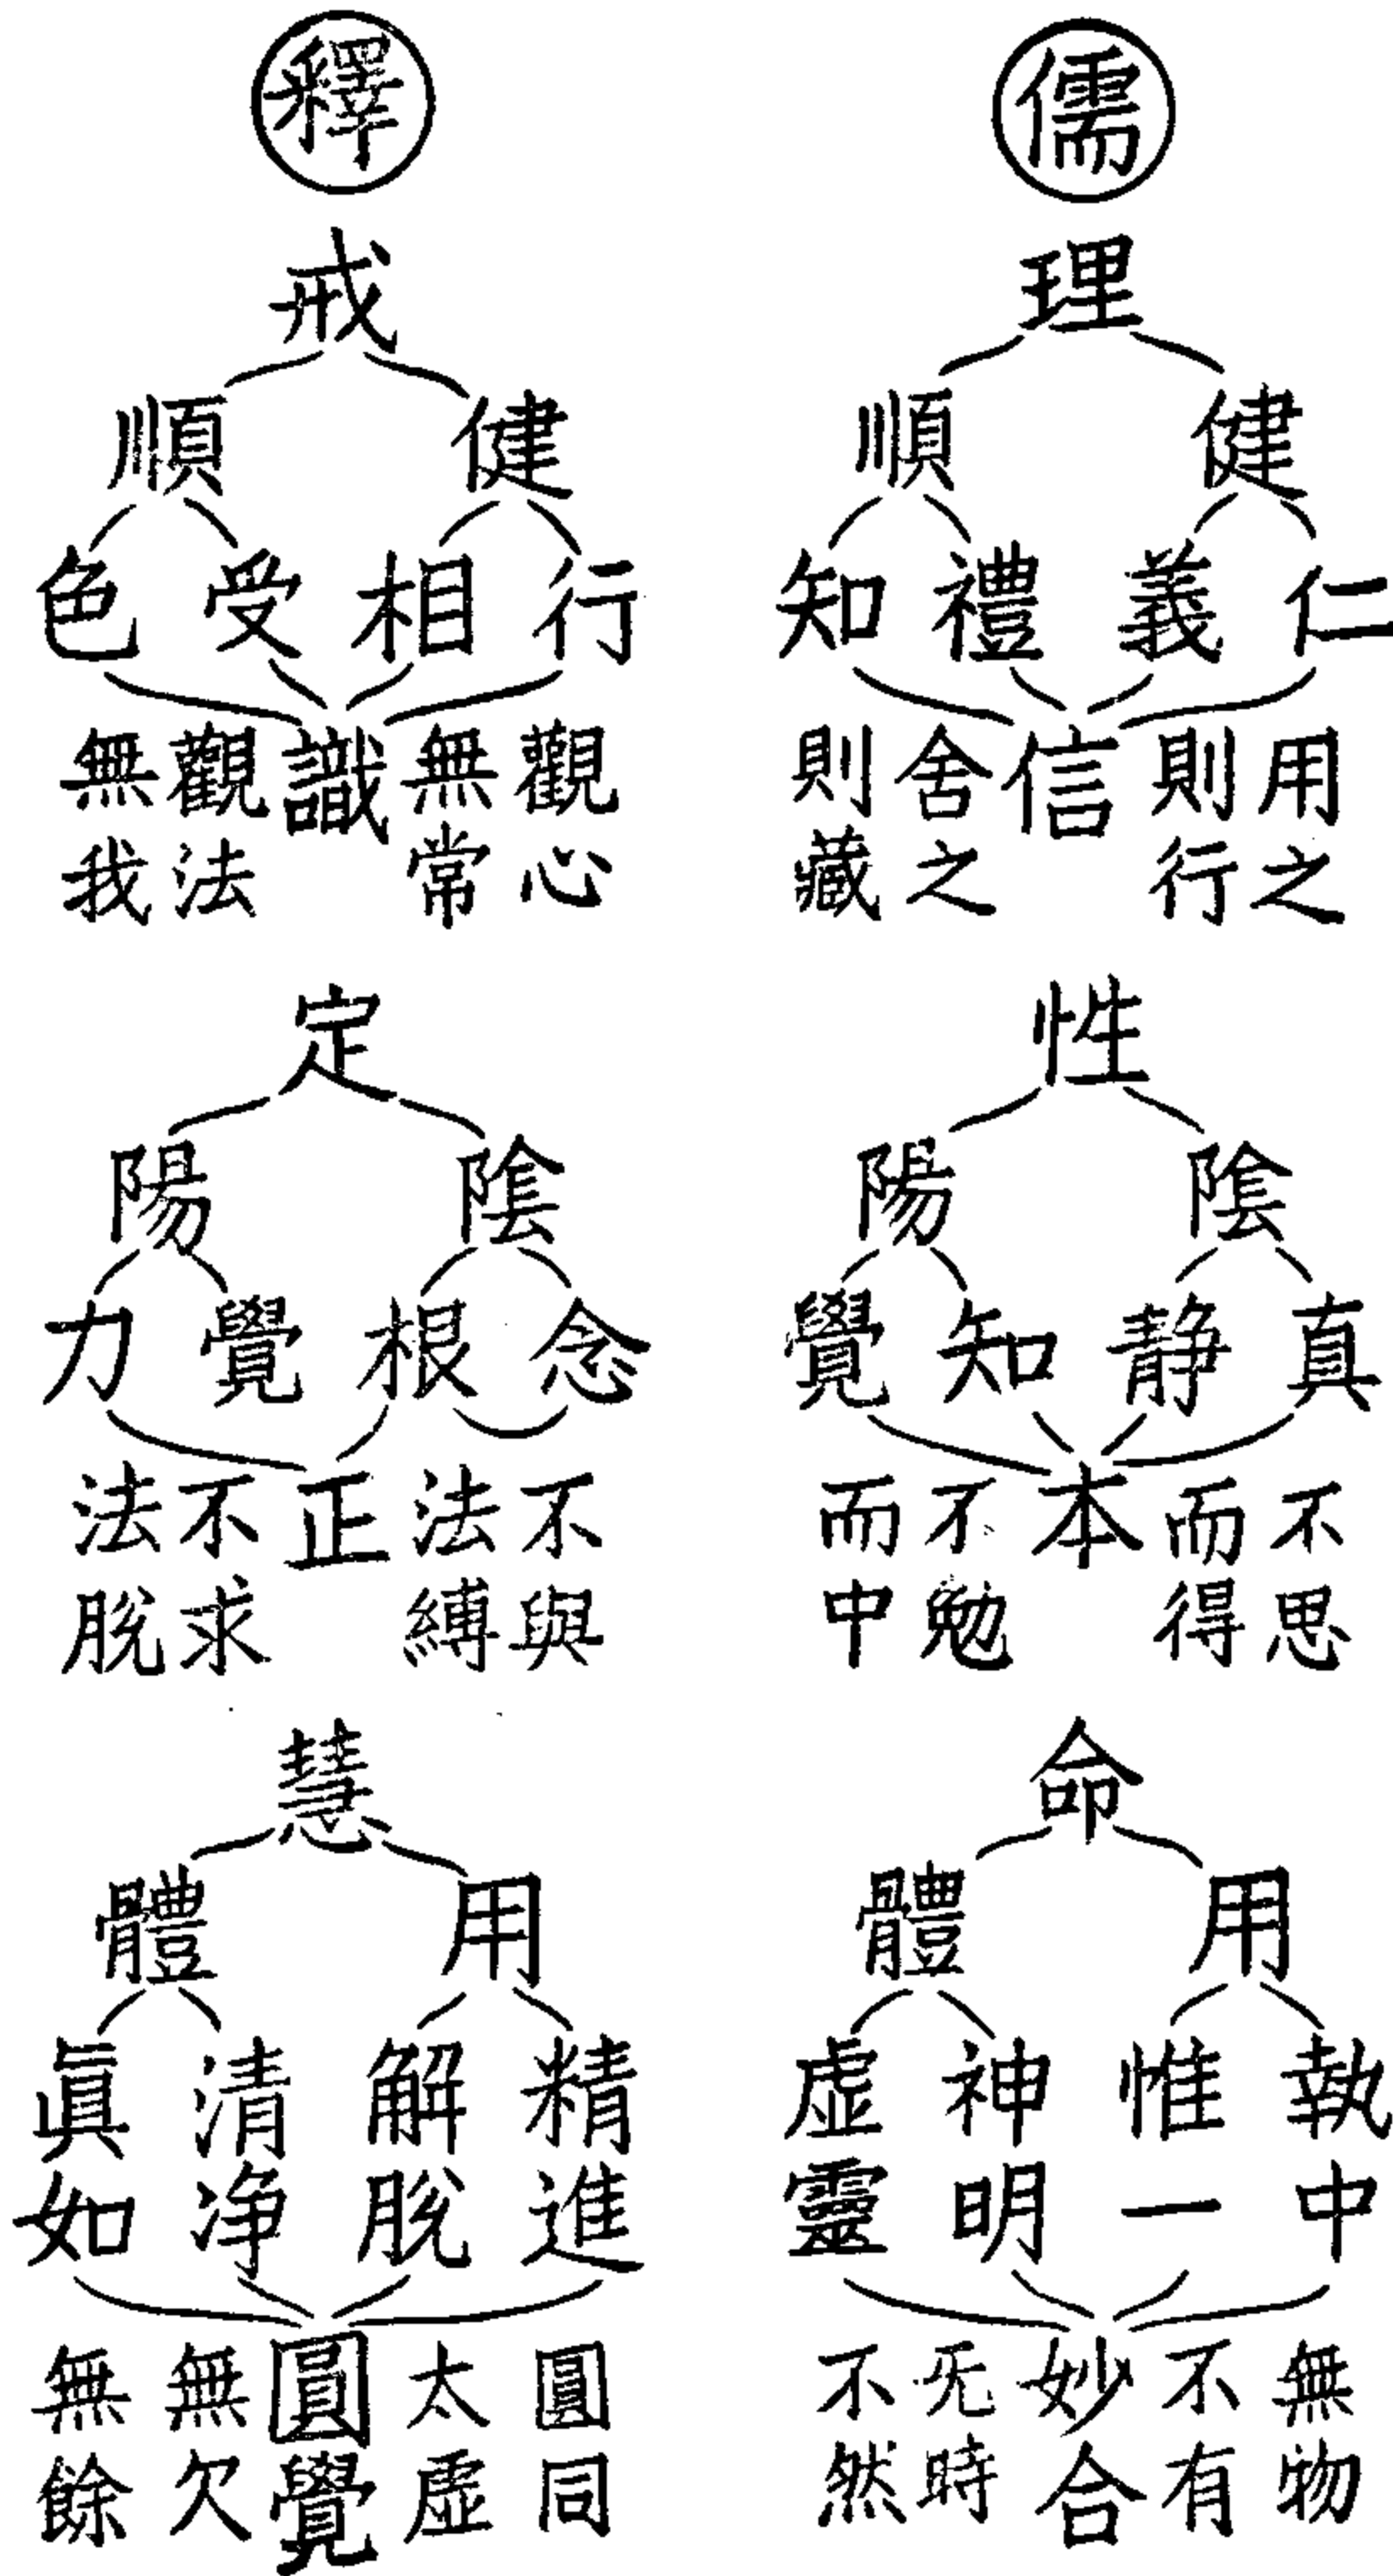 儒
理
健 順
仁 義 禮 知
信
用之則行
舍之則藏
性
陰 陽
真 静 知 覺
本
不思而得
不勉而中
命
用 體
執中 惟一 神明 虛靈
妙合
無物不有
无時不然
釋
戒
健 順
行 相 受 色
識
觀心無常
觀法無我
定
陰 陽
念 根 覺 力
正
不與法縛
不求法脫
慧
用 體
精進 解脫 清净 眞如
圓覺
圓同太虛
無欠無餘